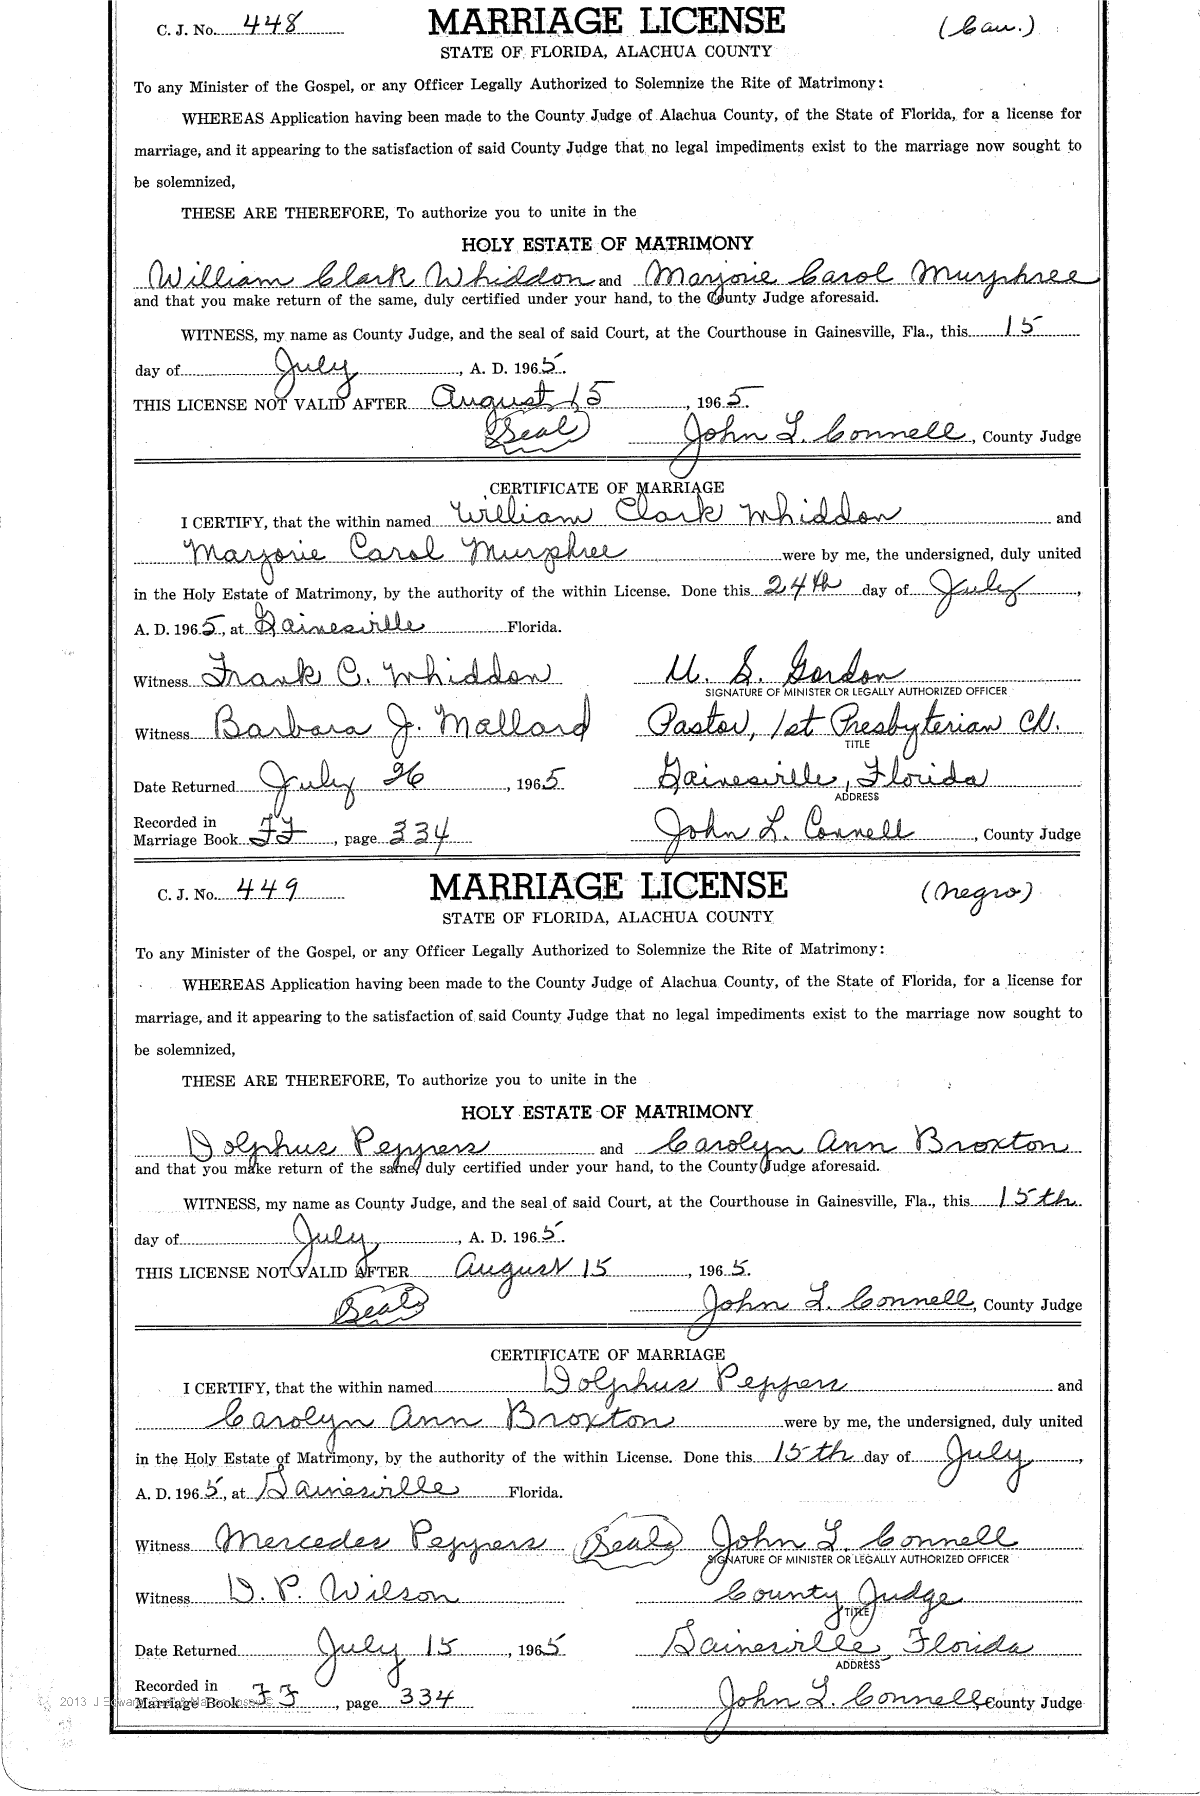 C. J. No. 448 MARRIAGE LICENSE (Cau.)
STATE OF FLORIDA, ALACHUA COUNTY
To any Minister of the Gospel, or any Officer Legally Authorized to Solemnize the Rite of Matrimony:
WHEREAS Application having been made to the County Judge of Alachua County, of the State of Florida, for a license for
marriage, and it appearing to the satisfaction of said County Judge that no legal impediments exist to the marriage now sought to
be solemnized,
THESE ARE THEREFORE, To authorize you to unite in the
HOLY ESTATE OF MATRIMONY
William Clark Whiddon and Marjorie Carol Murphree
and that you make return of the same, duly certified under your hand, to the County Judge aforesaid.
WITNESS, my name as County Judge, and the seal of said Court, at the Courthouse in Gainesville, Fla., this 15
day of July, A. D. 1965.
THIS LICENSE NOT VALID AFTER August 15, 1965.
(Seal) John L. Connell, County Judge
CERTIFICATE OF MARRIAGE
I CERTIFY, that the within named William Clark Whiddon and
Marjorie Carol Murphree were by me, the undersigned, duly united
in the Holy Estate of Matrimony, by the authority of the within License. Done this 24th day of July,
A. D. 1965, at Gainesville Florida.
Witness Frank C. Whiddon U. S. Gordon
SIGNATURE OF MINISTER OR LEGALLY AUTHORIZED OFFICER
Witness Barbara J. Mallard Pastor, 1st Presbyterian Ch.
TITLE
Date Returned July 26, 1965 Gainesville, Florida
ADDRESS
Recorded in
Marriage Book FF, page 334 John L. Connell, County Judge
C. J. No. 449 MARRIAGE LICENSE (Negro)
STATE OF FLORIDA, ALACHUA COUNTY
To any Minister of the Gospel, or any Officer Legally Authorized to Solemnize the Rite of Matrimony:
WHEREAS Application having been made to the County Judge of Alachua County, of the State of Florida, for a license for
marriage, and it appearing to the satisfaction of said County Judge that no legal impediments exist to the marriage now sought to
be solemnized,
THESE ARE THEREFORE, To authorize you to unite in the
HOLY ESTATE OF MATRIMONY
Dolphus Peppers and Carolyn Ann Broxton
and that you make return of the same, duly certified under your hand, to the County Judge aforesaid.
WITNESS, my name as County Judge, and the seal of said Court, at the Courthouse in Gainesville, Fla., this 15th
day of July, A. D. 1965.
THIS LICENSE NOT VALID AFTER August 15, 1965.
(Seal) John L. Connell, County Judge
CERTIFICATE OF MARRIAGE
I CERTIFY, that the within named Dolphus Peppers and
Carolyn Ann Broxton were by me, the undersigned, duly united
in the Holy Estate of Matrimony, by the authority of the within License. Done this 15th day of July,
A. D. 1965, at Gainesville Florida.
Witness Mercedes Peppers (Seal) John L. Connell
SIGNATURE OF MINISTER OR LEGALLY AUTHORIZED OFFICER
Witness D. P. Wilson County Judge
TITLE
Date Returned July 15, 1965 Gainesville, Florida
ADDRESS
Recorded in
Marriage Book FF, page 334 John L. Connell, County Judge
2013 J